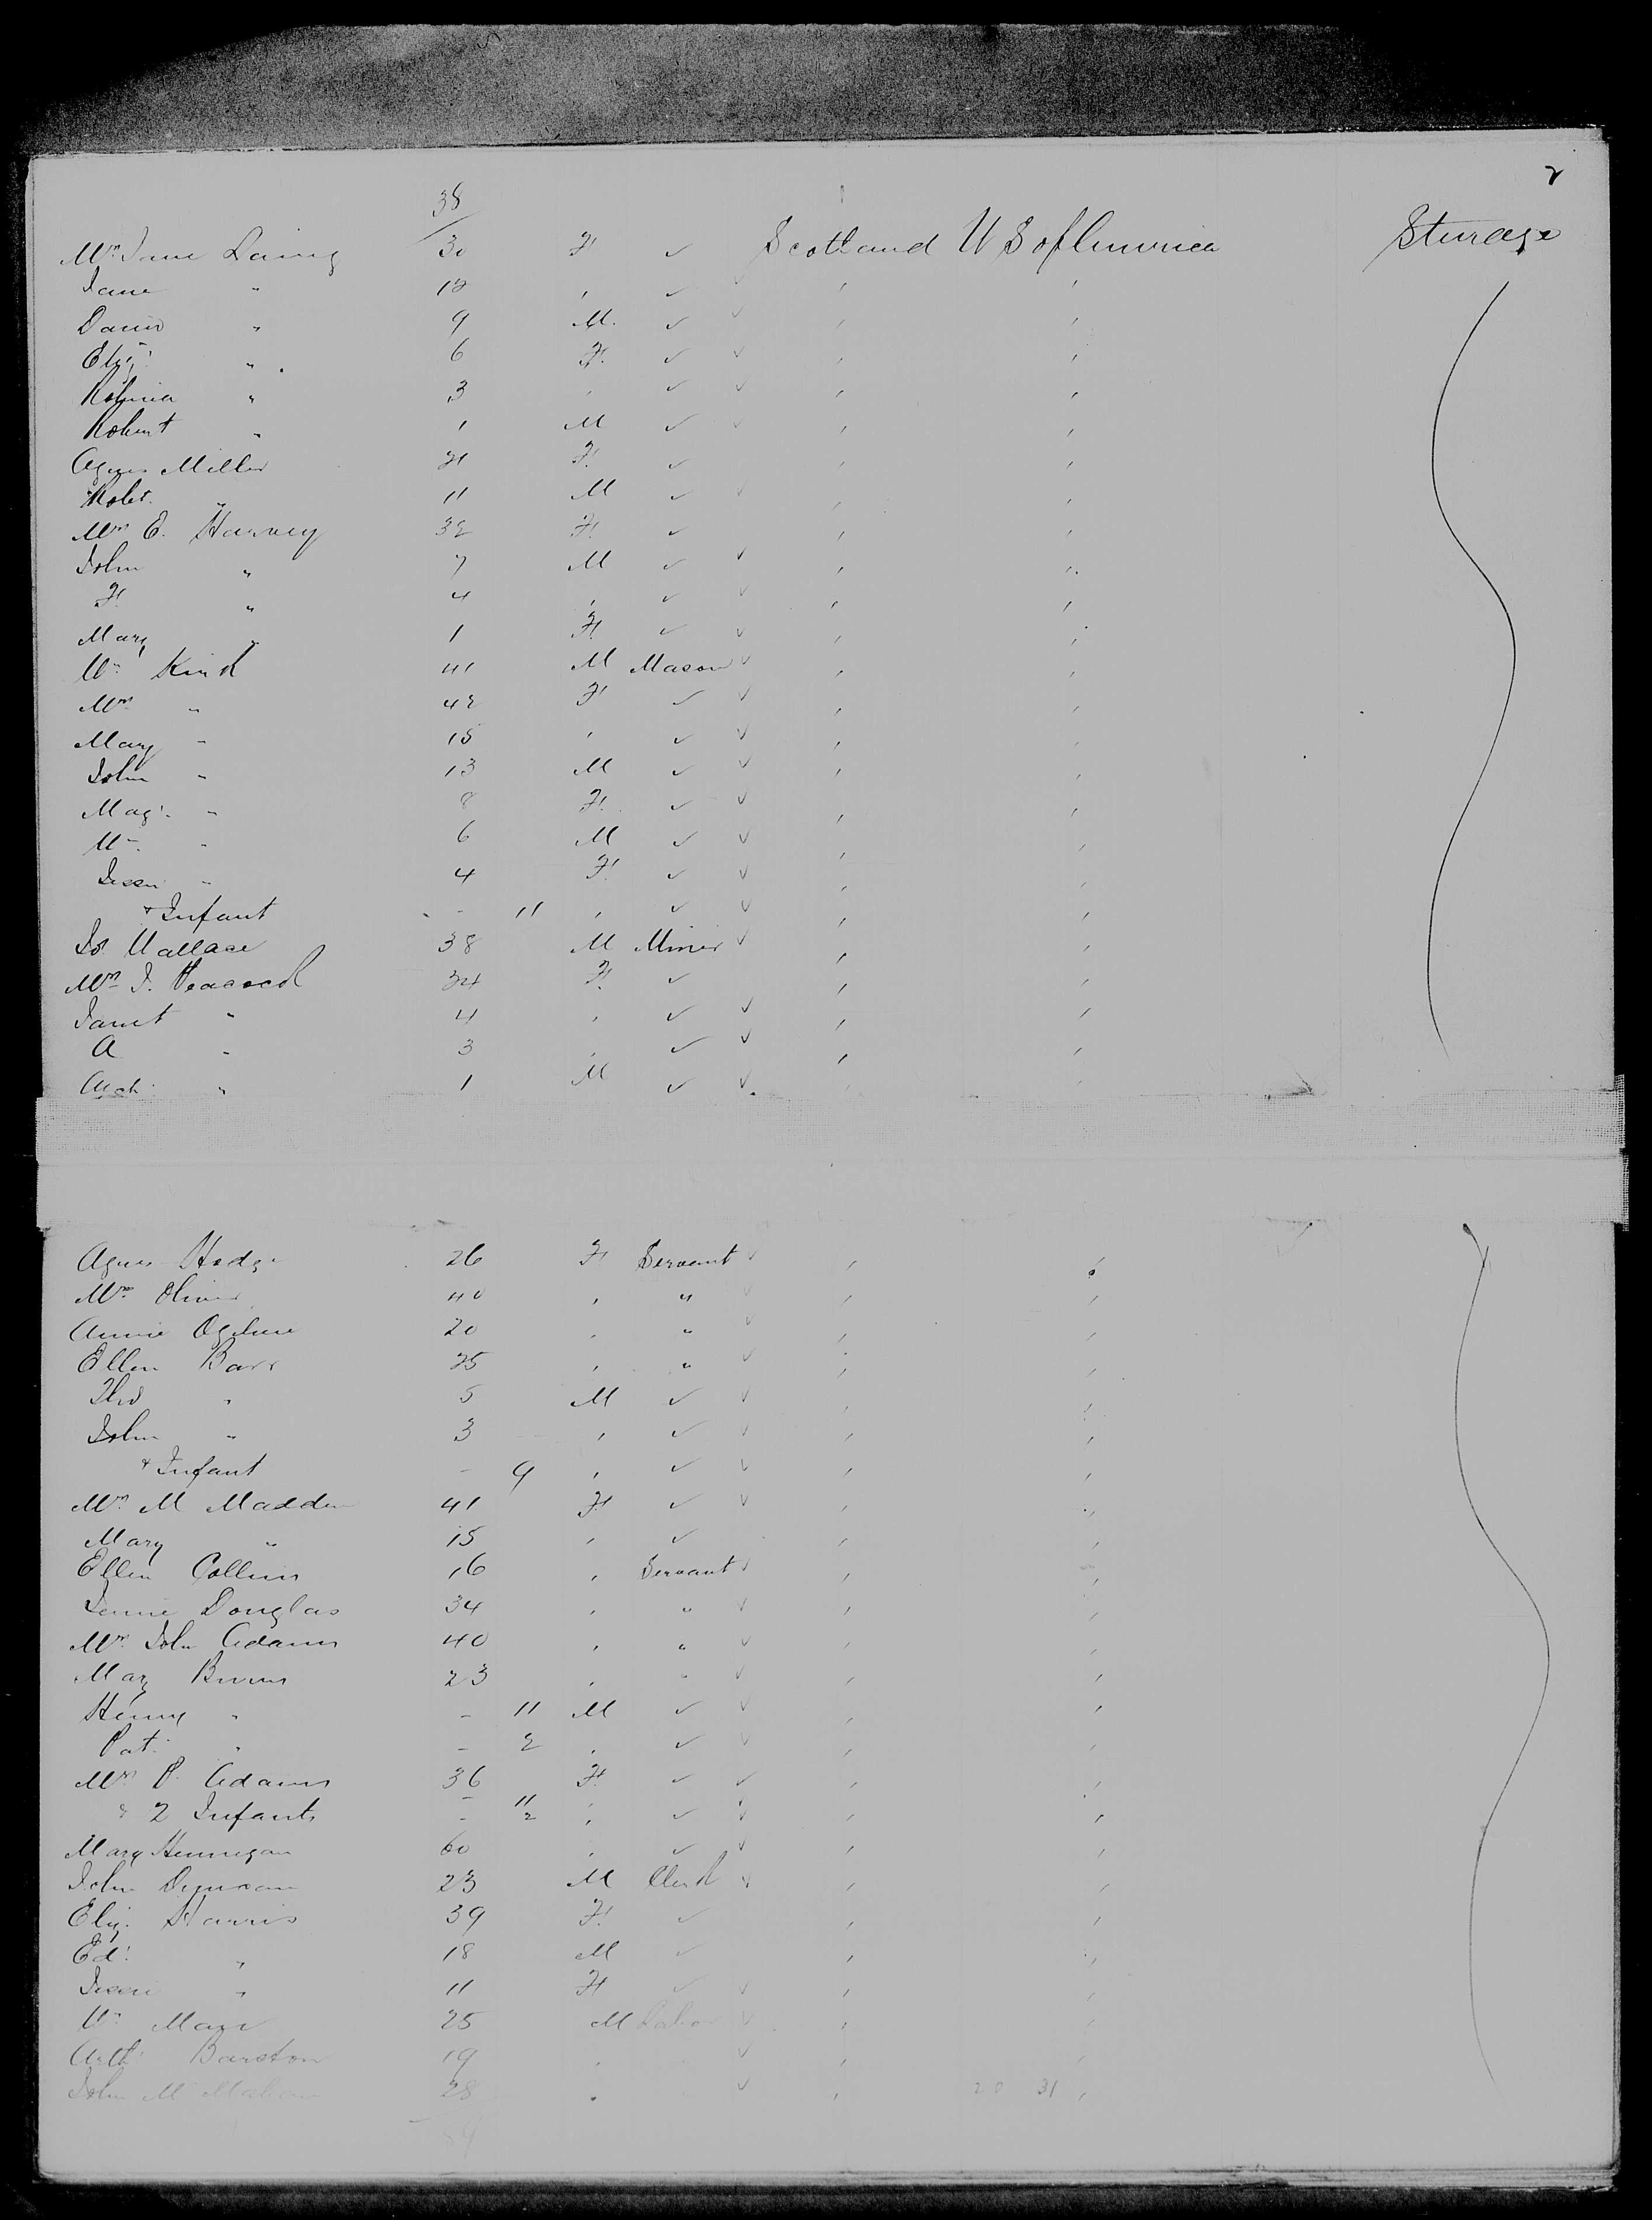 2
38
Mrs Jane Laing 30 F ✓ Scotland U S of America Sturage
Jane " 12 , ✓ , ,
David " 9 M. ✓ ✓ , ,
Eliz: " 6 F. ✓ ✓ , ,
Robina " 3 , ✓ ✓ , ,
Robert " 1 M ✓ ✓ , ,
Agnes Miller 21 F. ✓ , ,
Robt. " 11 M ✓ ✓ , ,
Mrs E. Harvey 32 F. ✓ , ,
John " 7 M ✓ ✓ , ,
F. " 4 , ✓ ✓ , ,
Mary " 1 F. ✓ ✓ , ,
Wm Kirk 41 M Mason ✓ , ,
Mrs " 42 F ✓ ✓ , ,
Mary " 15 , ✓ ✓ , ,
John " 13 M ✓ ✓ , ,
Mag: " 8 F. ✓ ✓ , ,
Wm. " 6 M ✓ ✓ , ,
Jessie " 4 F. ✓ ✓ , ,
& Infant - 11 , ✓ ✓ , ,
Jas Wallace 38 M Miner ✓ , ,
Mrs J. Peacock 34 F. ✓ , ,
Janet " 4 , ✓ ✓ , ,
A " 3 , ✓ ✓ , ,
Arch: " 1 M ✓ ✓ , ,
Agnes Hodge 26 F Servant ✓ , ,
Mrs Oliver 40 , " ✓ , ,
Annie Ogilvie 20 , " ✓ , ,
Ellen Barr 25 , " ✓ , ,
Thos " 5 M ✓ ✓ , ,
John " 3 , ✓ ✓ , ,
& Infant - 9 , ✓ ✓ , ,
Mrs M Madden 41 F ✓ ✓ , ,
Mary " 15 , ✓ , ,
Ellen Collins 16 , Servant ✓ , ,
Jennie Douglas 34 , " ✓ , ,
Mrs John Adams 40 , " ✓ , ,
Mary Burns 23 , " ✓ , ,
Henry " - 11 M ✓ ✓ , ,
Pat: " - 2 , ✓ ✓ , ,
Mrs P. Adams 36 F. ✓ ✓ , ,
& 2 Infants - 11 2 , ✓ ✓ , ,
Mary Hennigan 60 , ✓ ✓ , ,
John Duncan 23 M Clerk ✓ , ,
Eliz. Harris 39 F. ✓ , ,
Ed: " 18 M ✓ , ,
Jessie " 11 F ✓ ✓ , ,
Wm Marr 25 M Labor ✓ , ,
Arth: Barston 19 , ✓ , ,
John McMahon 28 , ✓ , 20 31 ,